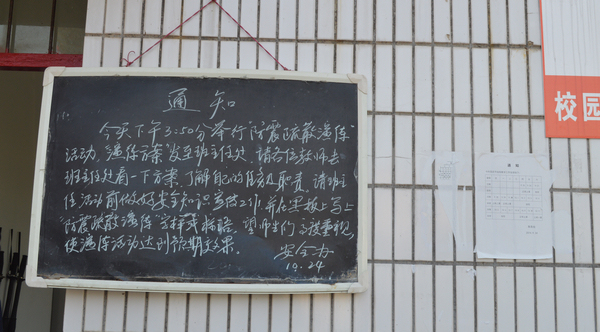 通知
今天下午3:50分举行"防震疏散演练"
活动,"演练方案"发至班主任处,请各位教师去
班主任处看一下方案,了解自己的任务及职责,请班主
任活动前做好安全知识宣传工作,并在黑板上写上
"防震疏散演练"字样或标语,望师生们高度重视,
使演练活动达到预期效果。
安全办
10.24
校园